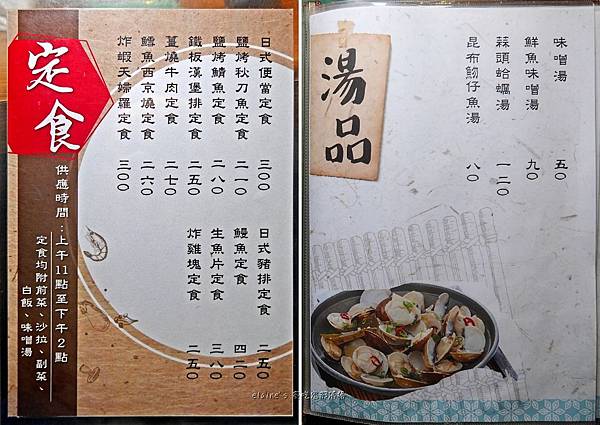 定食
日式便當定食 三〇〇
鹽烤秋刀魚定食 二一〇
鹽烤鯖魚定食 二八〇
鐵板漢堡排定食 二五〇
薑燒牛肉定食 二七〇
鱈魚西京燒定食 二六〇
炸蝦天婦羅定食 三〇〇
日式豬排定食 二五〇
鰻魚定食 四二〇
生魚片定食 三八〇
炸雞塊定食 二五〇
供應時間：上午11點至下午2點
定食均附前菜、沙拉、副菜、
白飯、味噌湯
湯品
味噌湯 五〇
鮮魚味噌湯 九〇
蒜頭蛤蠣湯 一二〇
昆布魩仔魚湯 八〇
elaine's